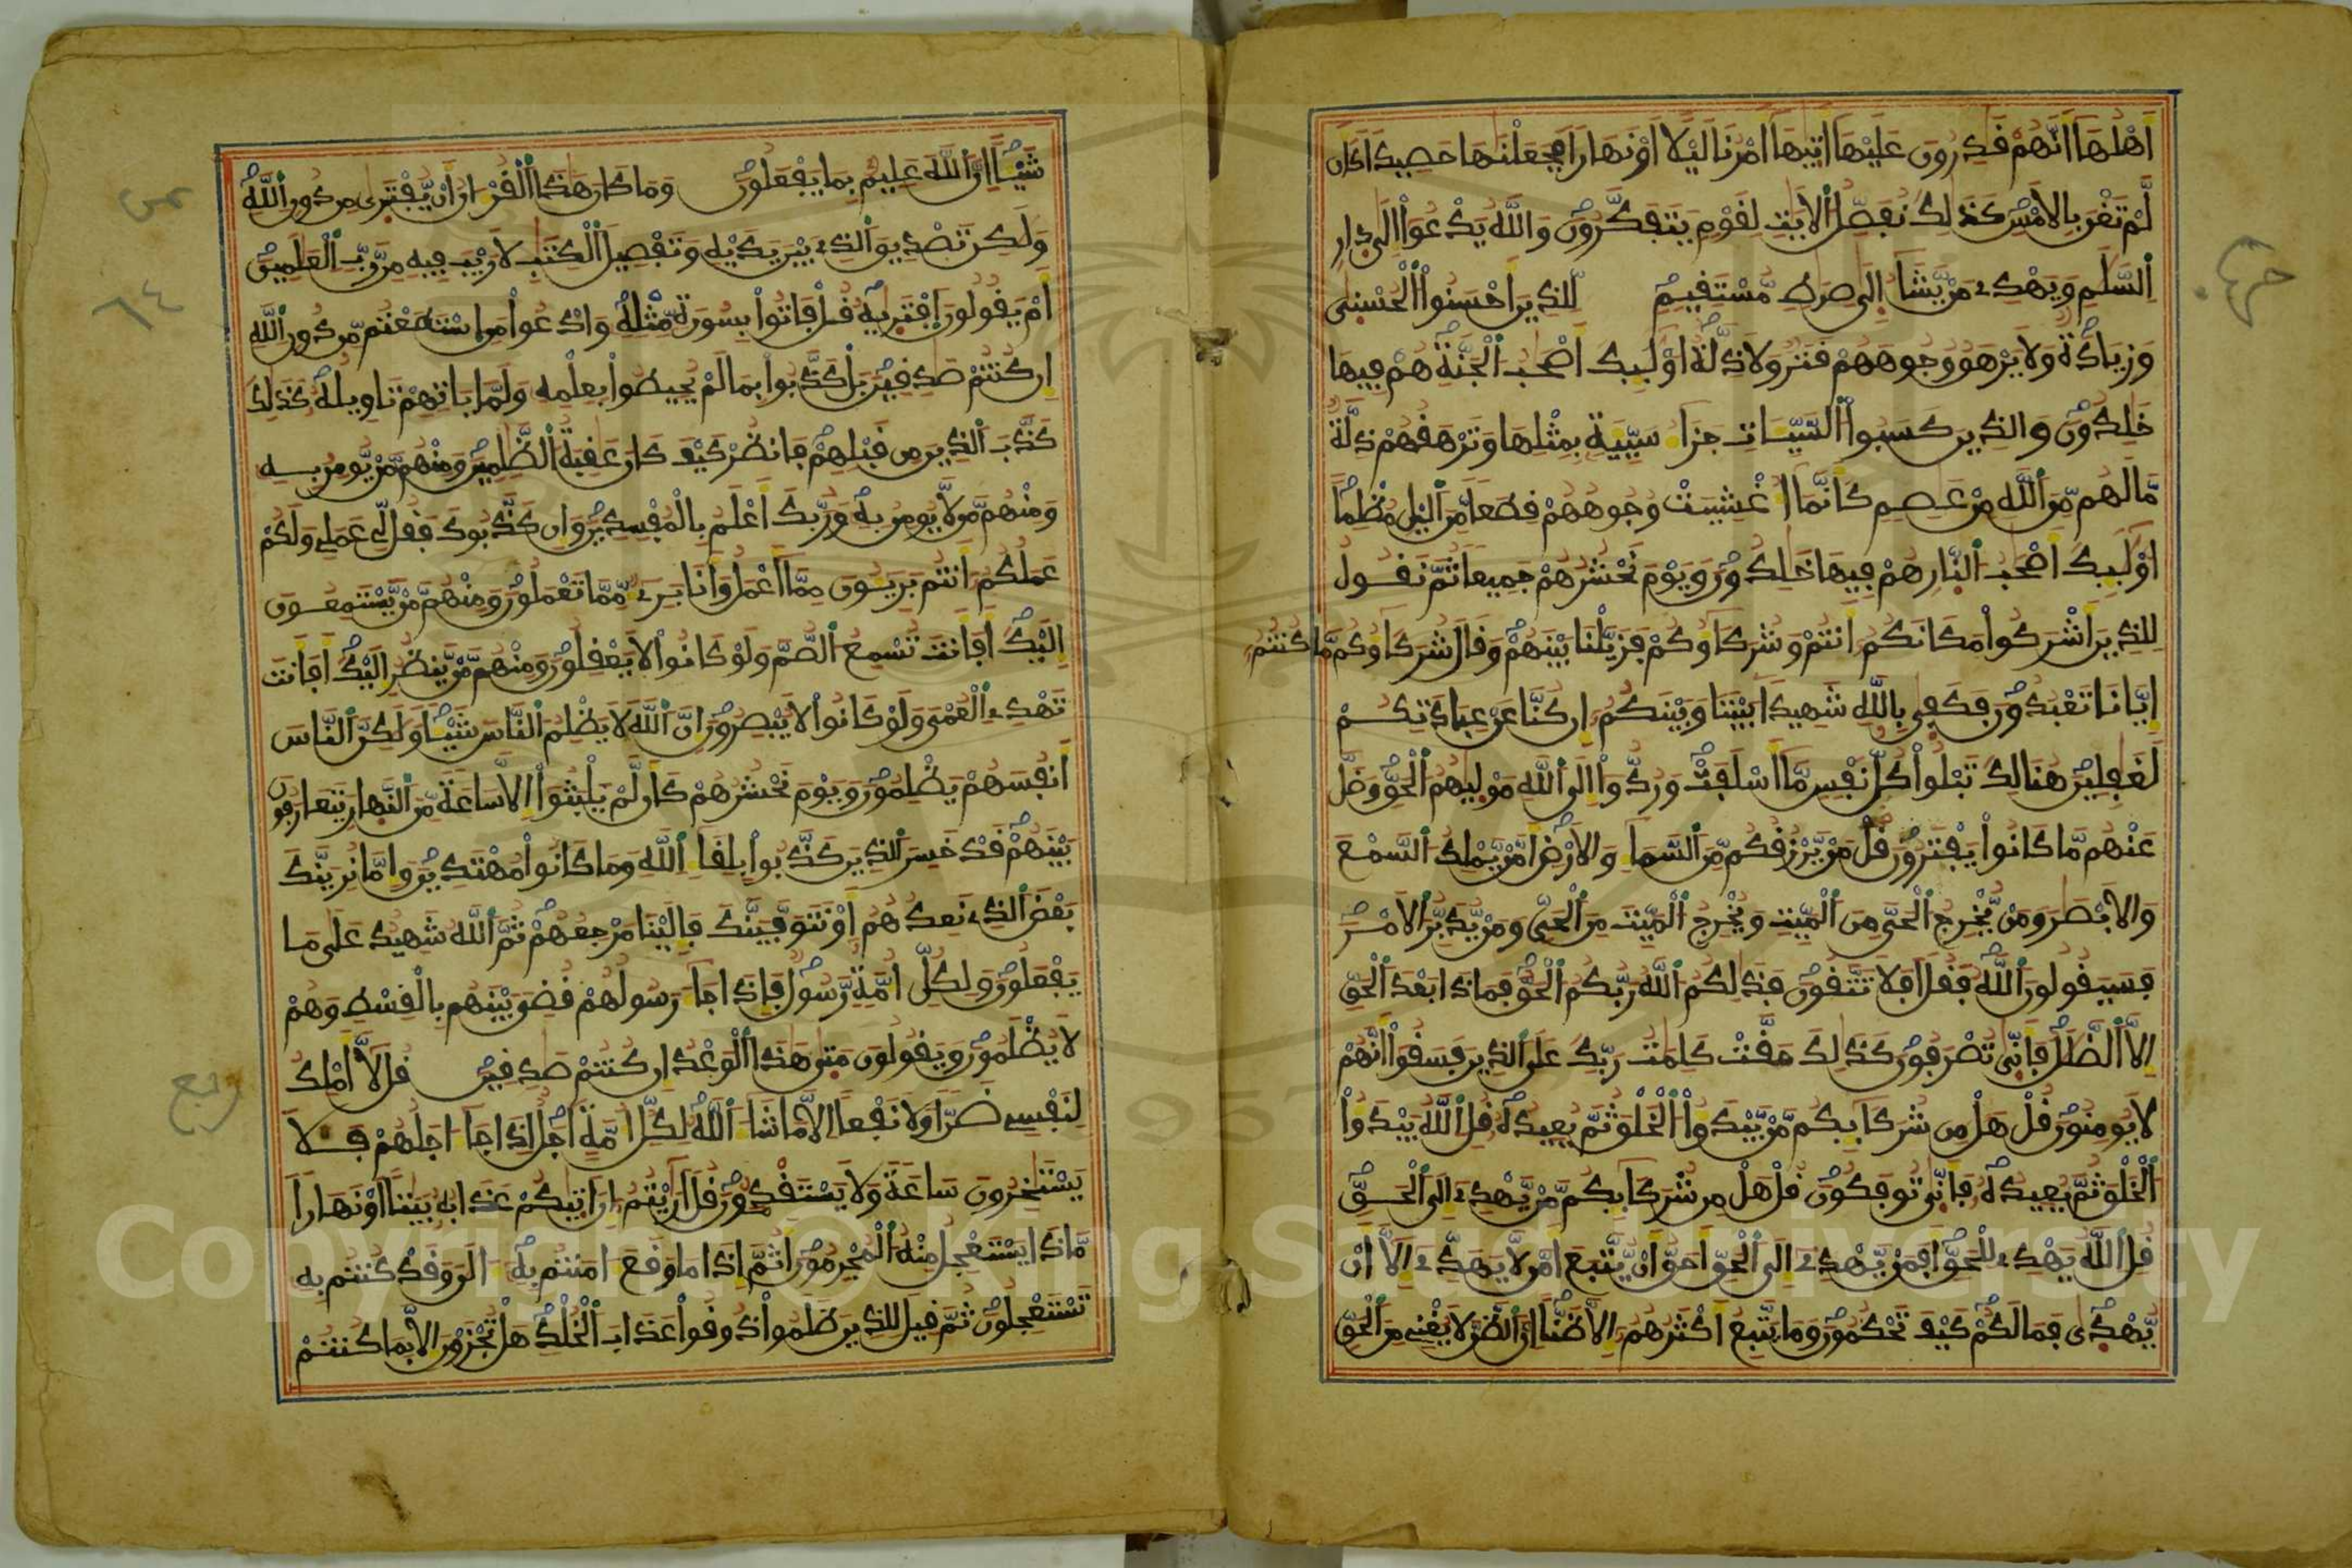 اَهْلُهَا أَنَّهُمْ قَٰدِرُونَ عَلَيْهَا أَتَيٰهَا أَمْرُنَا لَيْلًا اَوْ نَهَارًا فَجَعَلْنَٰهَا حَصِيدًا كَأَن
لَّمْ تَغْنَ بِالَامْسِ كَذَٰلِكَ نُفَصِّلُ اُ۬لَايَٰتِ لِقَوْمٍ يَتَفَكَّرُونَ وَاللَّهُ يَدْعُوٓاْ إِلَىٰ دِارِ
اِ۬لسَّلَٰمِ وَيَهْدِے مَنْ يَّشَآءُ اِلَىٰ صِرَٰطٍ مُّسْتَقِيمٍ لِّلذِينَ أَحْسَنُواْ اُ۬لْحُسْنٰى
وَزِيَادَةٌ وَلَا يَرْهَقُ وُجُوهَهُمْ قَتَرٌ وَلَا ذِلَّةٌ اُوْلَٰٓئِكَ أَصْحَٰبُ اُ۬لْجَنَّةِ هُمْ فِيهَا
خَٰلِدُونَ وَالذِينَ كَسَبُواْ اُ۬لسَّيِّـَٔاتِ جَزَآءُ سَيِّئَةٍ بِمِثْلِهَا وَتَرْهَقُهُمْ ذِلَّةٌ
مَّا لَهُم مِّنَ اَ۬للَّهِ مِنْ عَاصِمٍ كَأَنَّمَآ أُغْشِيَتْ وُجُوهُهُمْ قِطَعًا مِّنَ اَ۬ليْلِ مُظْلِمًا
اوْلَٰٓئِكَ أَصْحَٰبُ اُ۬لنّارِ هُمْ فِيهَا خَٰلِدُونَ وَيَوْمَ نَحْشُرُهُمْ جَمِيعًا ثُمَّ نَقُولُ
لِلذِينَ أَشْرَكُواْ مَكَانَكُمُۥٓ أَنتُمْ وَشُرَكَآؤُكُمْ فَزَيَّلْنَا بَيْنَهُمْ وَقَالَ شُرَكَآؤُهُم مَّا كُنتُمُۥٓ
إِيَّانَا تَعْبُدُونَ فَكَفٰى بِاللَّهِ شَهِيدًا بَيْنَنَا وَبَيْنَكُمُۥٓ إِن كُنَّا عَنْ عِبَادَتِكُمْ
لَغَٰفِلِينَ هُنَالِكَ تَبْلُواْ كُلُّ نَفْسٍ مَّآ أَسْلَفَتْ وَرُدُّوٓاْ إِلَى اَ۬للَّهِ مَوْلٰيهُمُ اُ۬لْحَقِّ وَضَلَّ
عَنْهُم مَّا كَانُواْ يَفْتَرُونَ قُلْ مَنْ يَّرْزُقُكُم مِّنَ اَ۬لسَّمَآءِ وَالَارْضِ أَمَّنْ يَّمْلِكُ اُ۬لسَّمْعَ
وَالَابْصَٰرَ وَمَنْ يُّخْرِجُ اُ۬لْحَيَّ مِنَ اَ۬لْمَيِّتِ وَيُخْرِجُ اُ۬لْمَيِّتَ مِنَ اَ۬لْحَيِّ وَمَنْ يُّدَبِّرُ اُ۬لَامْرَ
فَسَيَقُولُونَ اَ۬للَّهُ فَقُلَ اَفَلَا تَتَّقُونَ فَذَٰلِكُمُ اُ۬للَّهُ رَبُّكُمُ اُ۬لْحَقُّ فَمَاذَا بَعْدَ اَ۬لْحَقِّ
إِلَّا اَ۬لضَّلَٰلُ فَأَنّٰى تُصْرَفُونَ كَذَٰلِكَ حَقَّتْ كَلِمَٰتُ رَبِّكَ عَلَى اَ۬لذِينَ فَسَقُوٓاْ أَنَّهُمْ
لَا يُومِنُونَ قُلْ هَلْ مِن شُرَكَآئِكُم مَّنْ يَّبْدَؤُاْ اُ۬لْخَلْقَ ثُمَّ يُعِيدُهُۥ قُلِ اِ۬للَّهُ يَبْدَؤُاْ
اُ۬لْخَلْقَ ثُمَّ يُعِيدُهُۥ فَأَنّٰى تُوفَكُونَ قُلْ هَلْ مِن شُرَكَآئِكُم مَّنْ يَّهْدِےٓ إِلَى اَ۬لْحَقِّ
قُلِ اِ۬للَّهُ يَهْدِے لِلْحَقِّ أَفَمَنْ يَّهْدِےٓ إِلَى اَ۬لْحَقِّ أَحَقُّ أَنْ يُّتَّبَعَ أَمَّن لَّا يَهَدِّےٓ إِلَّآ أَنْ
يُّهْدٰى فَمَا لَكُمْ كَيْفَ تَحْكُمُونَ وَمَا يَتَّبِعُ أَكْثَرُهُمُۥٓ إِلَّا ظَنًّا اِنَّ اَ۬لظَّنَّ لَا يُغْنِے مِنَ اَ۬لْحَقِّ
شَيْـًٔا اِنَّ اَ۬للَّهَ عَلِيمٌ بِمَا يَفْعَلُونَ وَمَا كَانَ هَٰذَا اَ۬لْقُرْءَانُ أَنْ يُّفْتَرٰى مِن دُونِ اِ۬للَّهِ
وَلَٰكِن تَصْدِيقَ اَ۬لذِے بَيْنَ يَدَيْهِ وَتَفْصِيلَ اَ۬لْكِتَٰبِ لَا رَيْبَ فِيهِ مِن رَّبِّ اِ۬لْعَٰلَمِينَ
أَمْ يَقُولُونَ اَ۪فْتَر۪يٰهُ قُلْ فَاتُواْ بِسُورَةٍ مِّثْلِهِ وَادْعُواْ مَنِ اِ۪سْتَطَعْتُم مِّن دُونِ اِ۬للَّهِ
إِن كُنتُمْ صَٰدِقِينَ بَلْ كَذَّبُواْ بِمَا لَمْ يُحِيطُواْ بِعِلْمِهِ وَلَمَّا يَاتِهِمْ تَاوِيلُهُ كَذَٰلِكَ
كَذَّبَ اَ۬لذِينَ مِن قَبْلِهِمْ فَانظُرْ كَيْفَ كَانَ عَٰقِبَةُ اُ۬لظَّٰلِمِينَ وَمِنْهُم مَّنْ يُّومِنُ بِهِ
وَمِنْهُم مَّن لَّا يُومِنُ بِهِ وَرَبُّكَ أَعْلَمُ بِالْمُفْسِدِينَ وَإِن كَذَّبُوكَ فَقُل لِّے عَمَلِے وَلَكُمْ
عَمَلُكُمُۥٓ أَنتُم بَرِيٓـُٔونَ مِمَّآ أَعْمَلُ وَأَنَا بَرِےٓءٌ مِّمَّا تَعْمَلُونَ وَمِنْهُم مَّنْ يَّسْتَمِعُونَ
إِلَيْكَ أَفَأَنتَ تُسْمِعُ اُ۬لصُّمَّ وَلَوْ كَانُواْ لَا يَعْقِلُونَ وَمِنْهُم مَّنْ يَّنظُرُ إِلَيْكَ أَفَأَنتَ
تَهْدِے اِ۬لْعُمْيَ وَلَوْ كَانُواْ لَا يُبْصِرُونَ إِنَّ اَ۬للَّهَ لَا يَظْلِمُ اُ۬لنَّاسَ شَيْـًٔا وَلَٰكِنَّ اَ۬لنَّاسَ
أَنفُسَهُمْ يَظْلِمُونَ وَيَوْمَ نَحْشُرُهُمْ كَأَن لَّمْ يَلْبَثُوٓاْ إِلَّا سَاعَةً مِّنَ اَ۬لنَّهارِ يَتَعَارَفُونَ
بَيْنَهُمْ قَدْ خَسِرَ اَ۬لذِينَ كَذَّبُواْ بِلِقَآءِ اِ۬للَّهِ وَمَا كَانُواْ مُهْتَدِينَ وَإِمَّا نُرِيَنَّكَ
بَعْضَ اَ۬لذِے نَعِدُهُمُۥٓ أَوْ نَتَوَفَّيَنَّكَ فَإِلَيْنَا مَرْجِعُهُمْ ثُمَّ اَ۬للَّهُ شَهِيدٌ عَلَىٰ مَا
يَفْعَلُونَ وَلِكُلِّ أُمَّةٍ رَّسُولٌ فَإِذَا جَآءَ رَسُولُهُمْ قُضِيَ بَيْنَهُم بِالْقِسْطِ وَهُمْ
لَا يُظْلَمُونَ وَيَقُولُونَ مَتٰى هَٰذَا اَ۬لْوَعْدُ إِن كُنتُمْ صَٰدِقِينَ قُل لَّآ أَمْلِكُ
لِنَفْسِے ضَرًّا وَلَا نَفْعًا اِلَّا مَا شَآءَ اَ۬للَّهُ لِكُلِّ أُمَّةٍ اَجَلٌ اِذَا جَآءَ اجَلُهُمْ فَلَا
يَسْتَٰخِرُونَ سَاعَةً وَلَا يَسْتَقْدِمُونَ قُلَ اَرَٰٓيْتُمُۥٓ إِنَ اَتَيٰكُمْ عَذَابُهُ بَيَٰتًا اَوْ نَهَارًا
مَّاذَا يَسْتَعْجِلُ مِنْهُ اُ۬لْمُجْرِمُونَ أَثُمَّ إِذَا مَا وَقَعَ ءَامَنتُم بِهِ ءَآلَٰنَ وَقَدْ كُنتُم بِهِ
تَسْتَعْجِلُونَ ثُمَّ قِيلَ لِلذِينَ ظَلَمُواْ ذُوقُواْ عَذَابَ اَ۬لْخُلْدِ هَلْ تُجْزَوْنَ إِلَّا بِمَا كُنتُمْ
٦٤
ربع
Copyright © King Saud University
1957